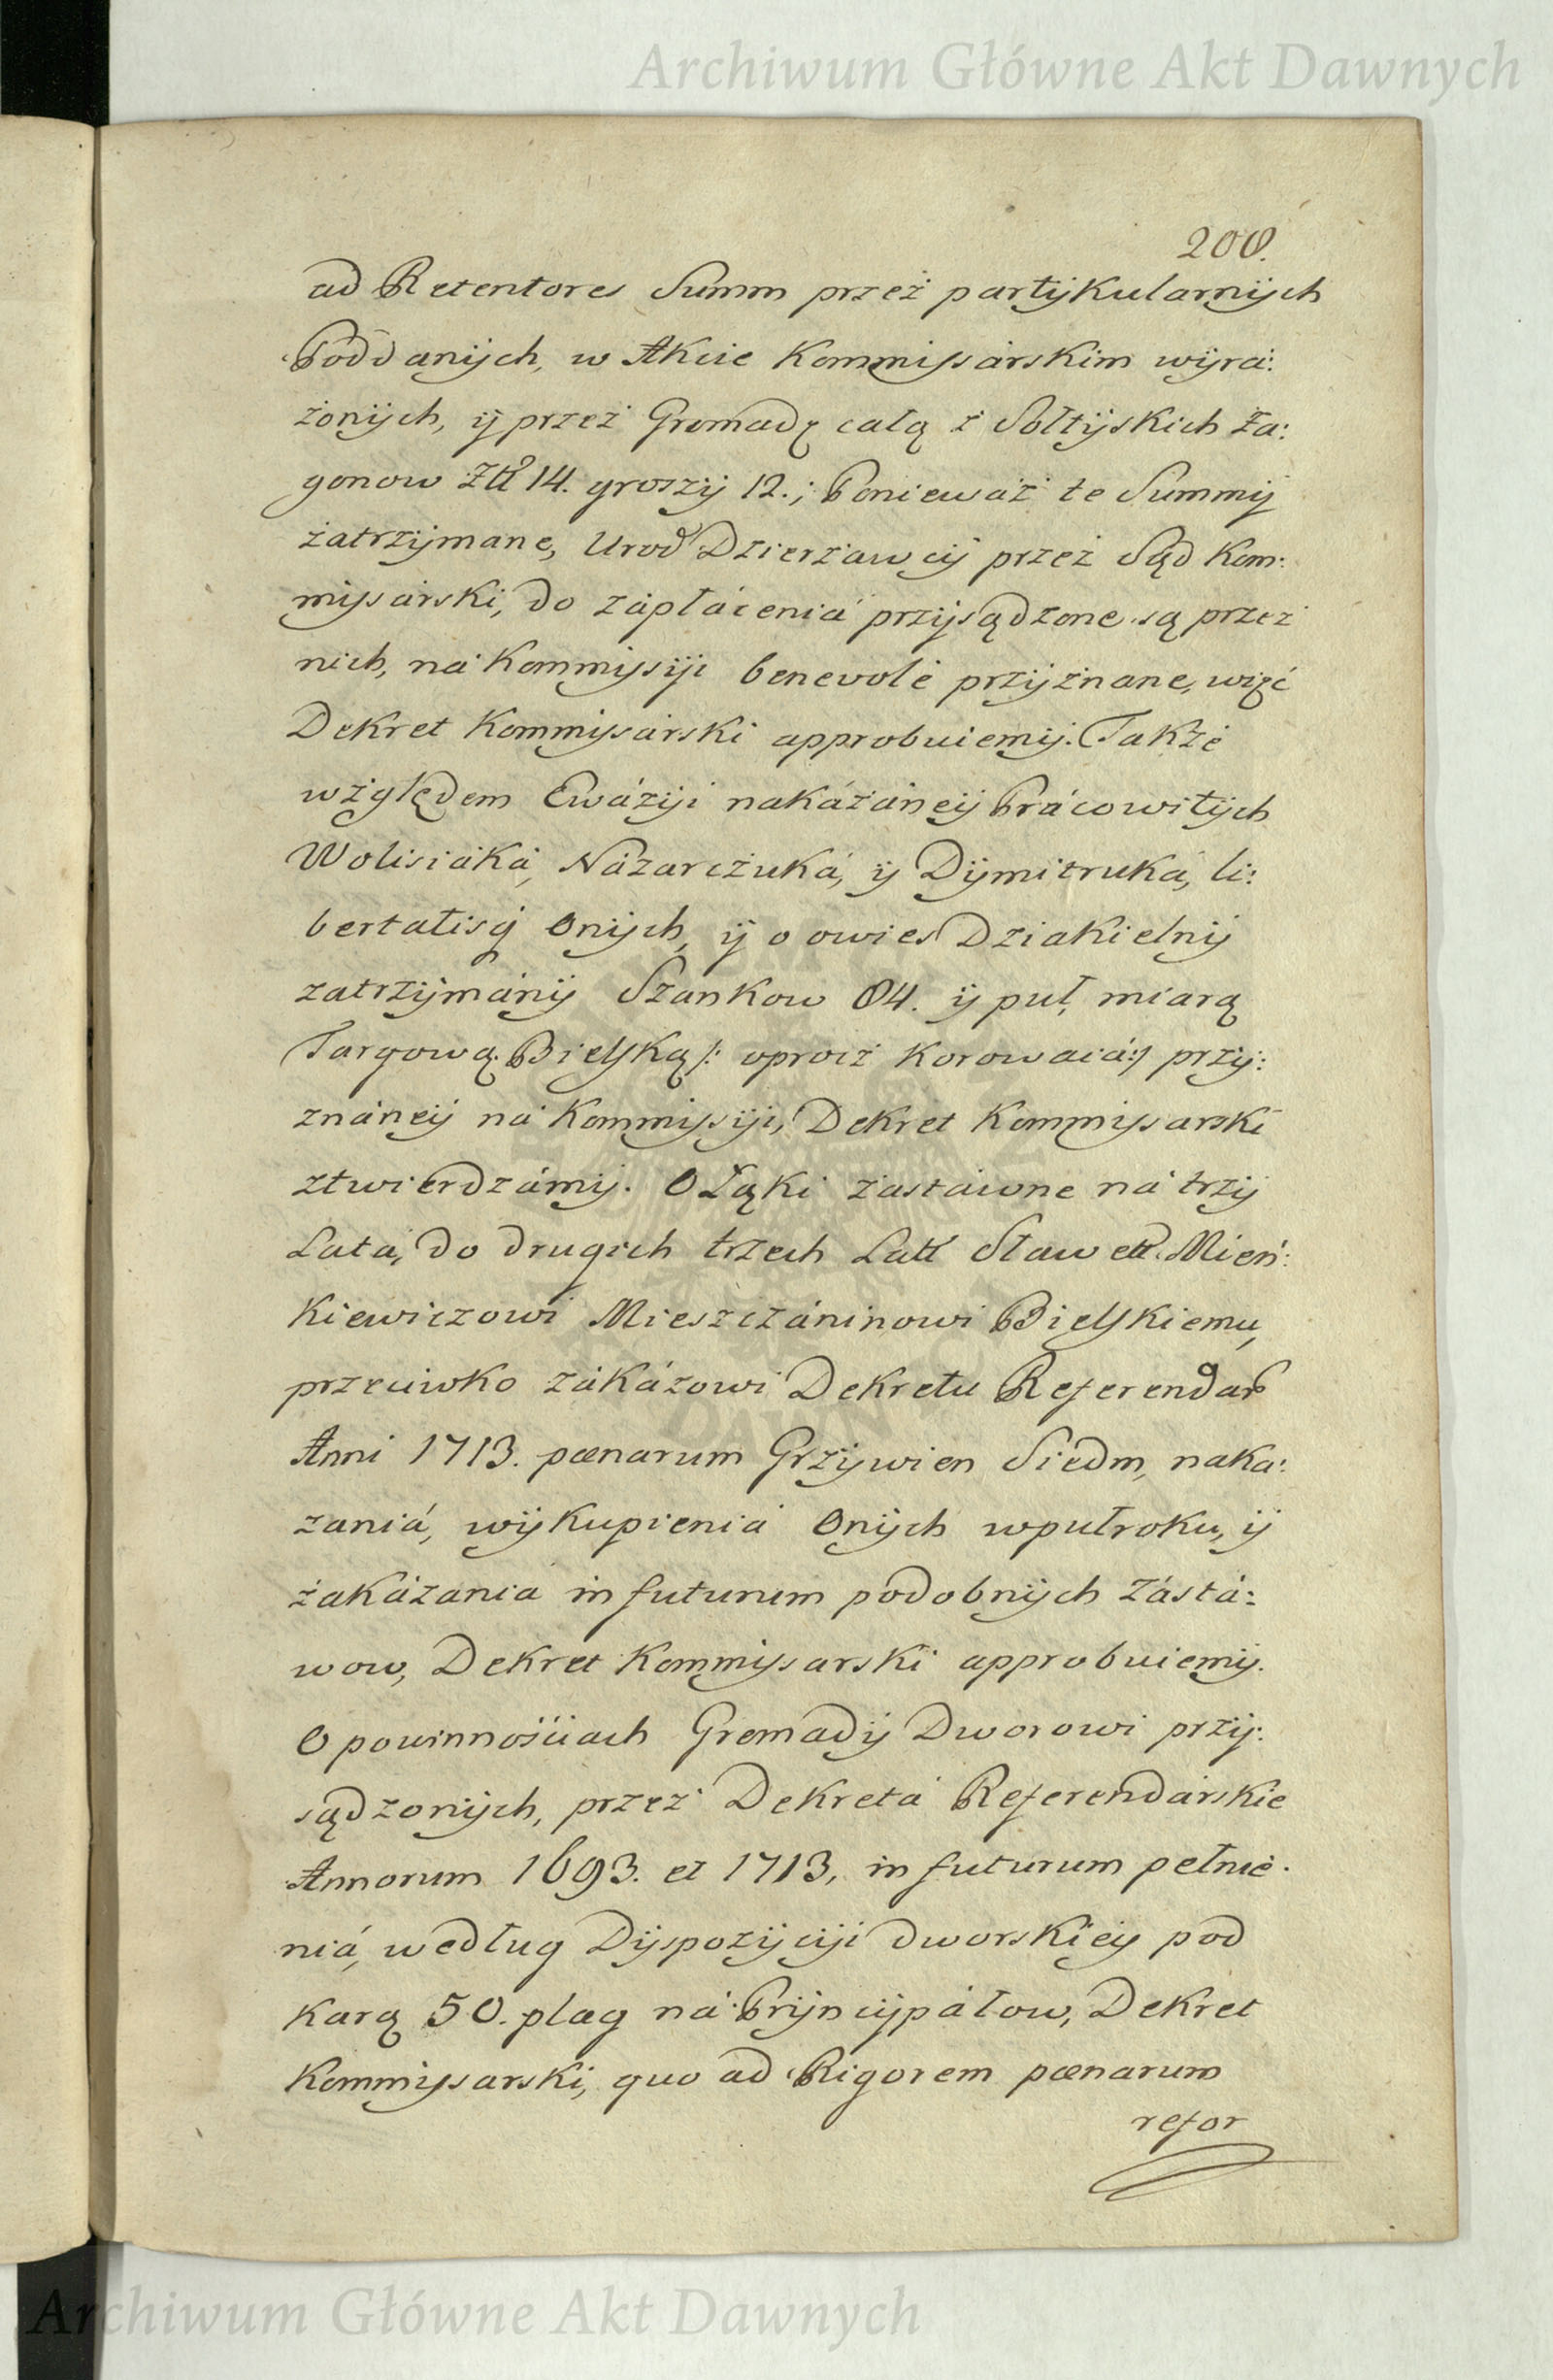 Archiwum Główne Akt Dawnych
200.
ad Retentores Summ przez partykularnych
Poddanych, w Akcie Kommissarskim wyra:
żonych, y przez Gromadę całą z Sołtyskich Za:
gonow Złł 14. groszy 12.; Ponieważ te Summy
zatrzymane, Urod Dzierżawcy przez Sąd Kom:
missarski, do zápłácenia przysądzone są przez
nich, ná Kommissyi benevolè przyznane, więc
Dekret Kommissarski approbuiemy. Także
względem Ewázyi nakázáney Prácowitych
Wolisiáká, Názarczuká, y Dymitruká, li:
bertatisq onych, y o owies Dziakielny
zatrzymány Szankow 84. y puł, miarą
Targową Bielską /: oprocz Korowaiá :/ przy:
znáney ná Kommissyi, Dekret Kommissarski
ztwierdzámy. O Łąki zastáwne ná trzy
Lata, do drugich trzech Latt Sławett. Mień:
kiewiczowi Mieszczáninowi Bielskiemu,
przeciwko zákázowi Dekretu Referendar
Anni 1713. pœnarum Grzywien Siedm, naka:
zaniá, wykupieniá onych wpułroku, y
zakázania in futurum podobnych Zástá:
wow, Dekret Kommissarski approbuiemy.
O powinnościach Gromady Dworowi przy:
sądzonych, przez Dekretá Referendárskie
Annorum 1693. et 1713, in futurum pełnie:
niá, według Dyspozycyi dworskiey pod
karą 50. plag ná Pryncypáłow, Dekret
Kommissarski, quo ad Rigorem pœnarum
refor
Archiwum Główne Akt Dawnych